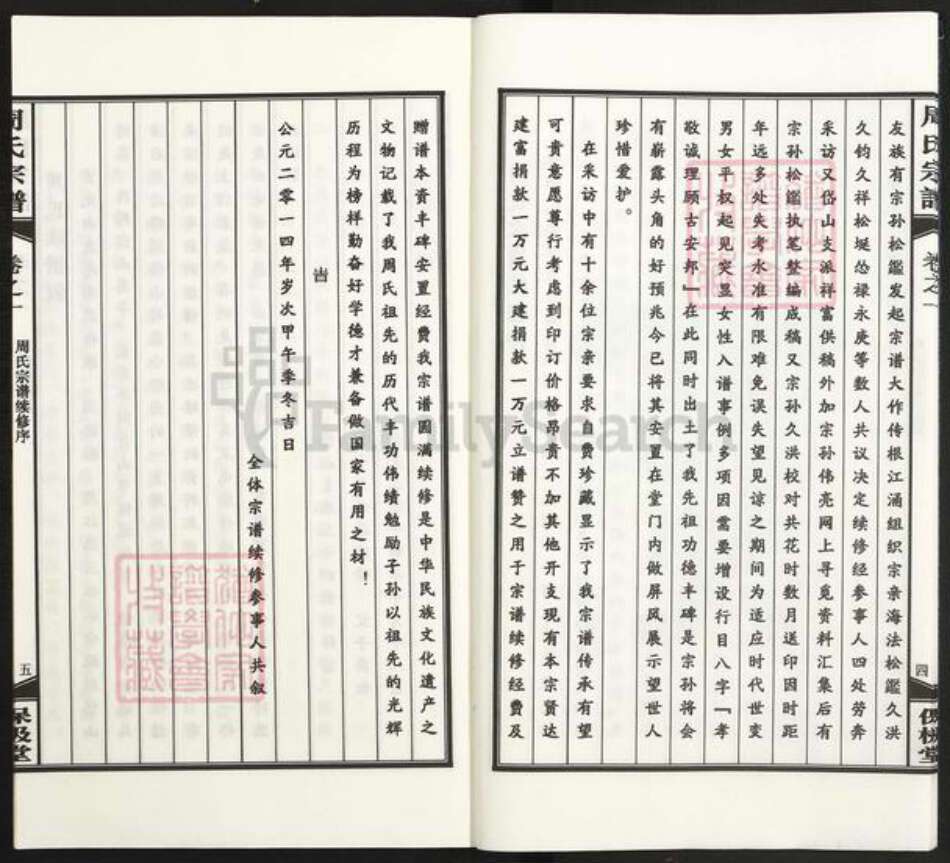 周氏宗谱
卷之一
四
保极堂
友族有宗孙松鑑发起宗谱大作传根江涌组织宗亲海法松鑑久洪
久钧久祥松堐怂禄永庚等数人共议决定续修经参事人四处劳奔
采访又岱山支派祥富供稿外加宗孙伟亮网上寻觅资料汇集后有
宗孙松鑑执笔整编成稿又宗孙久洪校对共花时数月送印因时距
年远多处失考水准有限难免误失望见谅之期间为适应时代世变
男女平权起见突显女性入谱事例多项因需要增设行目八字「孝
敬诚理顾古安邦」在此同时出土了我先祖功德丰碑是宗孙将会
有崭露头角的好预兆今已将其安置在堂门内做屏风展示望世人
珍惜爱护。
在采访中有十余位宗亲要求自费珍藏显示了我宗谱传承有望
可贵意愿尊行考虑到印订价格昂贵不加其他开支现有本宗贤达
建富捐款一万元大建捐款一万元立谱赞之用于宗谱续修经费及
赠谱本资丰碑安置经费我宗谱圆满续修是中华民族文化遗产之
文物记载了我周氏祖先的历代丰功伟绩勉励子孙以祖先的光辉
历程为榜样勤奋好学德才兼备做国家有用之材！
旹
公元二零一四年岁次甲午季冬吉日
全体宗谱续修参事人共叙
周氏宗谱
卷之一
周氏宗谱续修序
五
保极堂
FamilySearch